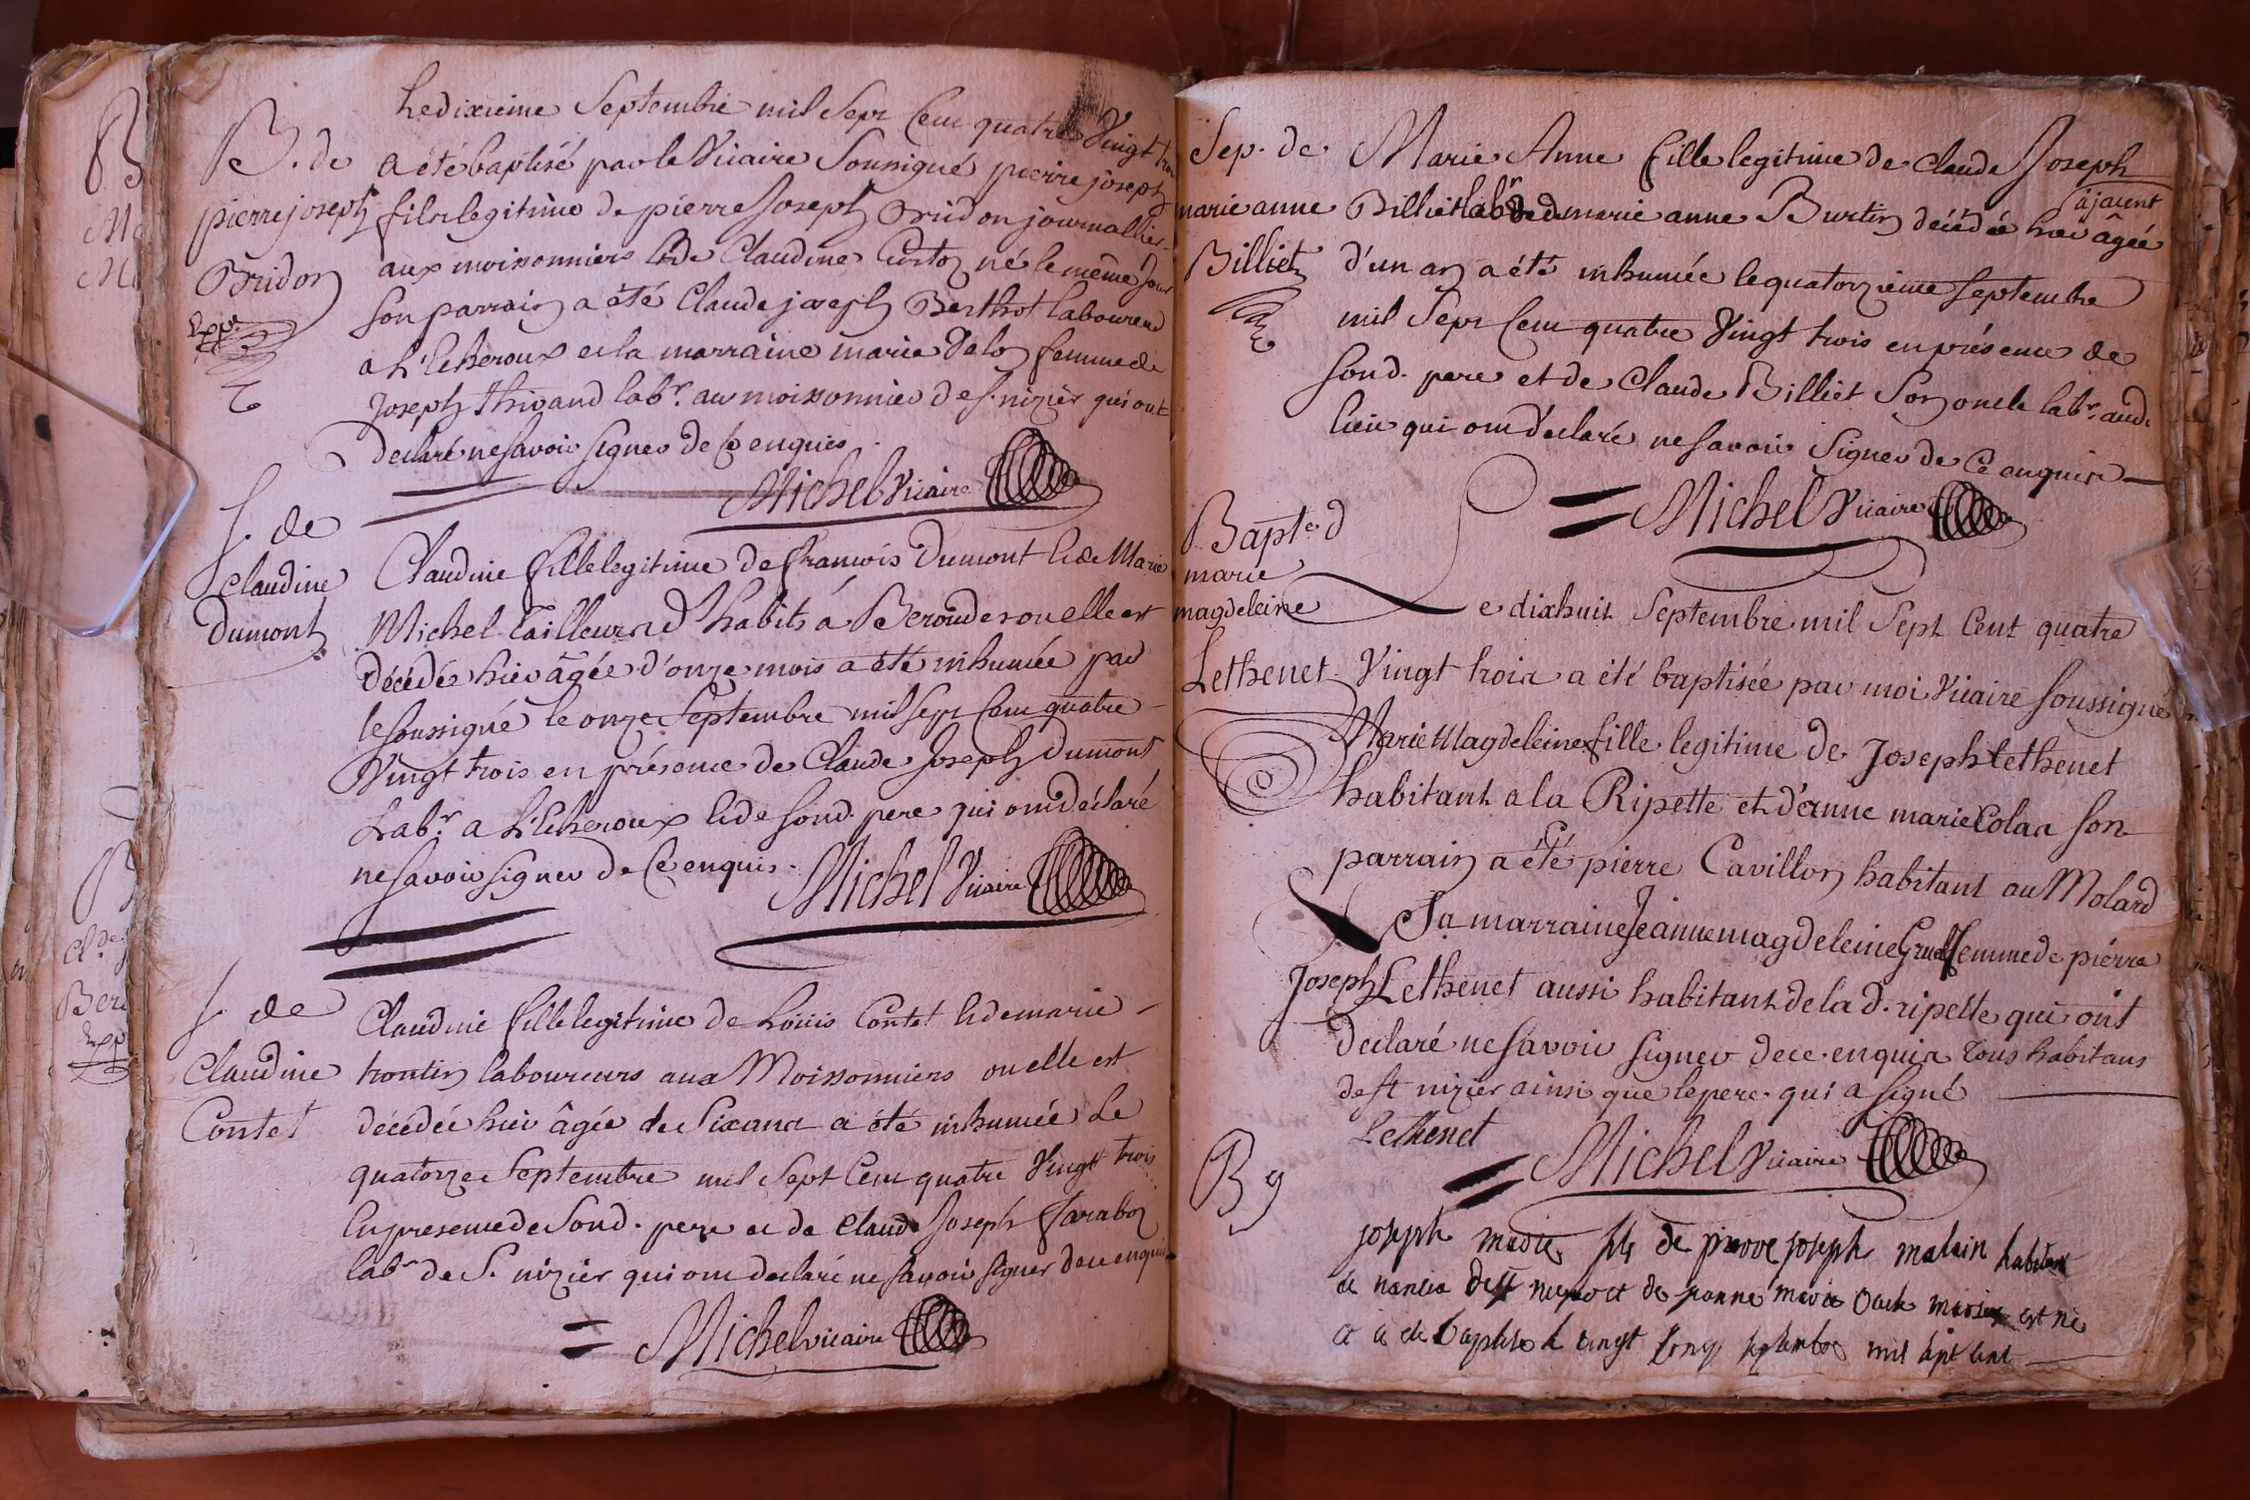 B. de
pierre joseph
Bridon
Exp.e
Le dixieme Septembre mil Sept Cent quatre Vingt trois
a été baptisé par le Vicaire Soussigné pierre joseph
fils legitime de pierre Joseph Bridon journallier
aux moissonniers & de Claudine né le même jour
son parrain a été Claude joseph Berthot laboureur
a L'Echeroux et la marraine marie femme de
Joseph Thivand labr. au moissonnier de s. nizier qui ont
declaré ne savoir signer de ce enquis.
Michel Vicaire
S. de
Claudine
Dumont
Claudine fille legitime de francois Dumont & de Marie
Michel Tailleur d'habits á ou elle est
décédée hier âgée d'onze mois a été inhumée par
le soussigné le onze Septembre mil sept Cent quatre
Vingt trois en présence de Claude Joseph Dumont
Labr. a L'Echeroux & de sond. pere qui ont déclaré
ne savoir signer de Ce enquis.
Michel Vicaire
S. de
Claudine
Contet
Claudine fille legitime de Loüis Contet & de marie
trontin laboureurs aux Moissonniers ou elle est
décédée hier âgée de Six ans a été inhumée Le
quatorze Septembre mil Sept Cent quatre Vingt trois
En presence de Sond. pere et de Claude Joseph faraboz
labr. de S. nizier qui ont declaré ne savoir signer de ce enquis
Michel vicaire
Sep. de
marie anne
Billiet
Marie Anne fille legitime de Claude Joseph
Billiet labr. & de marie anne Burtin décédée hier âgée
d'un an a été inhumée le quatorzieme septembre
mil Sept Cent quatre Vingt trois en présence de
sond. pere et de Claude Billiet Son oncle labr. aud.
lieu qui ont déclaré ne savoir Signer de Ce enquis
Michel Vicaire
Bapt. d
marie
magdeleine
Lethenet
Le dixhuit Septembre mil Sept Cent quatre
Vingt trois a été baptisée par moi Vicaire soussigné
Marie Magdeleine fille legitime de Joseph Lethenet
habitant a la Ripette et d'anne marie Colas son
parrain a été pierre Cavillon habitant au Molard
Sa marraine Jeanne magdeleine femme de pierre
Joseph Lethenet aussi habitant de la d. ripette qui ont
declaré ne savoir signer de ce enquis tous habitans
de st nizier ainsi que le pere qui a signé
Lethenet
Michel Vicaire
B
joseph marie fils de pierre joseph habitant
de jeanne marie est né
et a été baptisé le vingt septembre mil sept cent